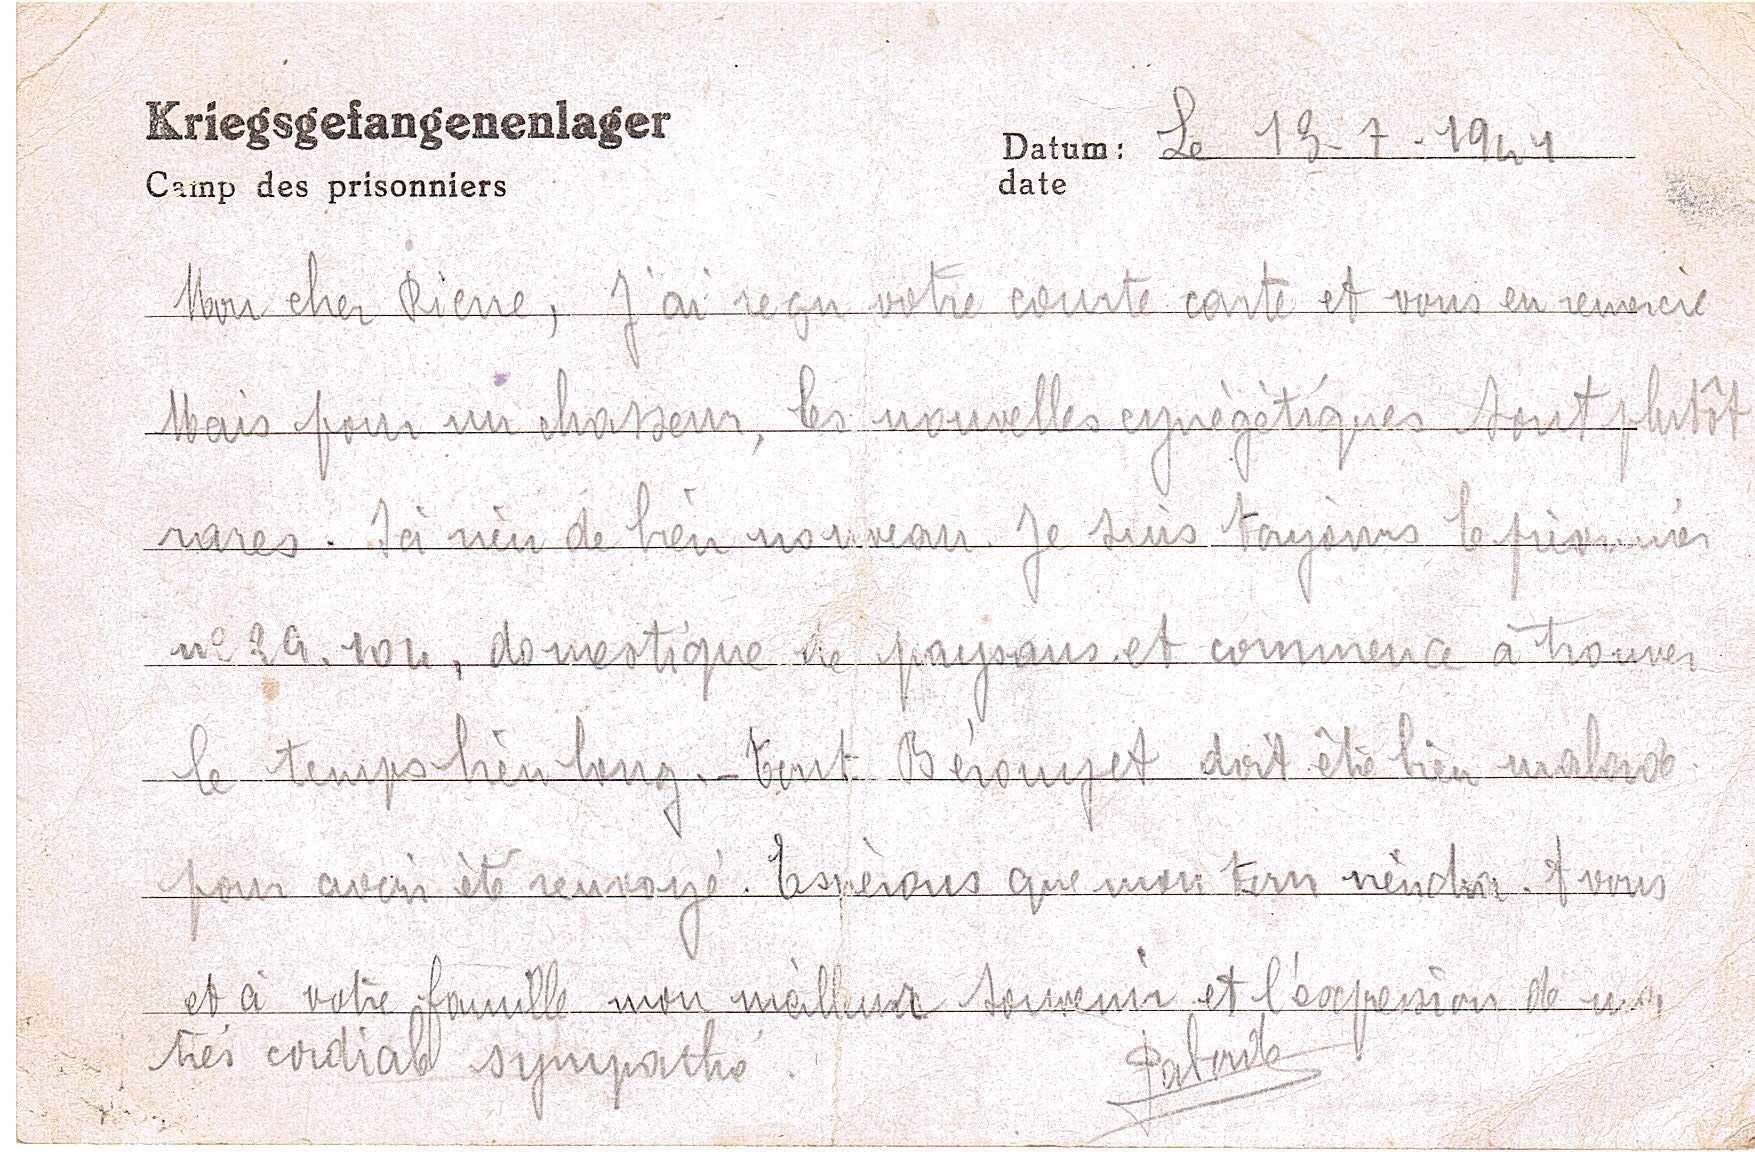 Kriegsgefangenenlager
Camp des prisonniers
Datum: Le 13-7-1941
date
Mon cher Pierre, J'ai reçu votre courte carte et vous en remercie
Mais pour un chasseur, les nouvelles cynégétiques sont plutôt
rares. Ici rien de bien nouveau. Je suis toujours le prisonnier
nº 29.104, domestique de paysans et commence à trouver
le temps bien long. - Bérouyet doit être bien malade
pour avoir été renvoyé. Espérons que mon tour viendra. A vous
et à votre famille mon meilleur souvenir et l'expression de ma
très cordiale sympathie.